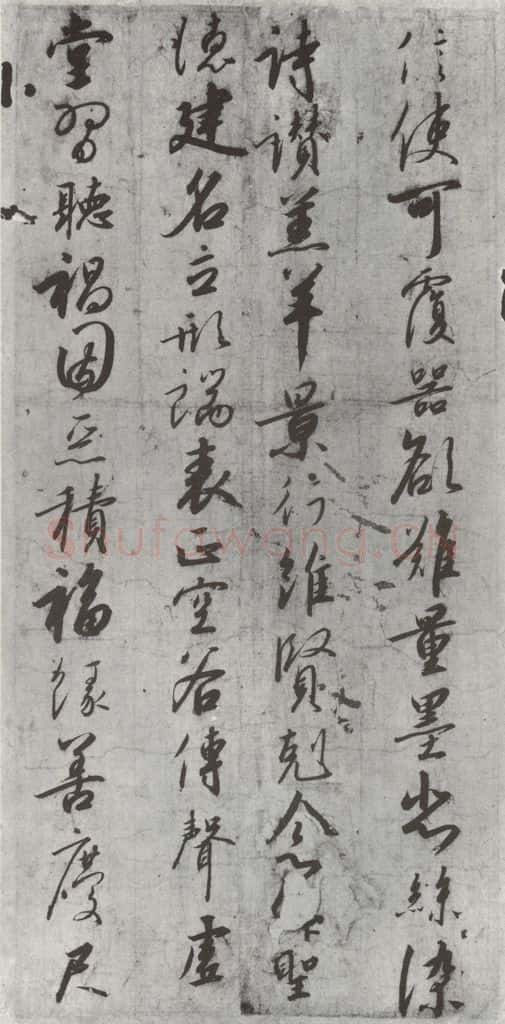 信使可覆器欲難量墨悲絲染
詩讚羔羊景行維賢剋念作聖
德建名立形端表正空谷傳聲虛
堂習聽禍因惡積福緣善慶尺
Shufawang.CN